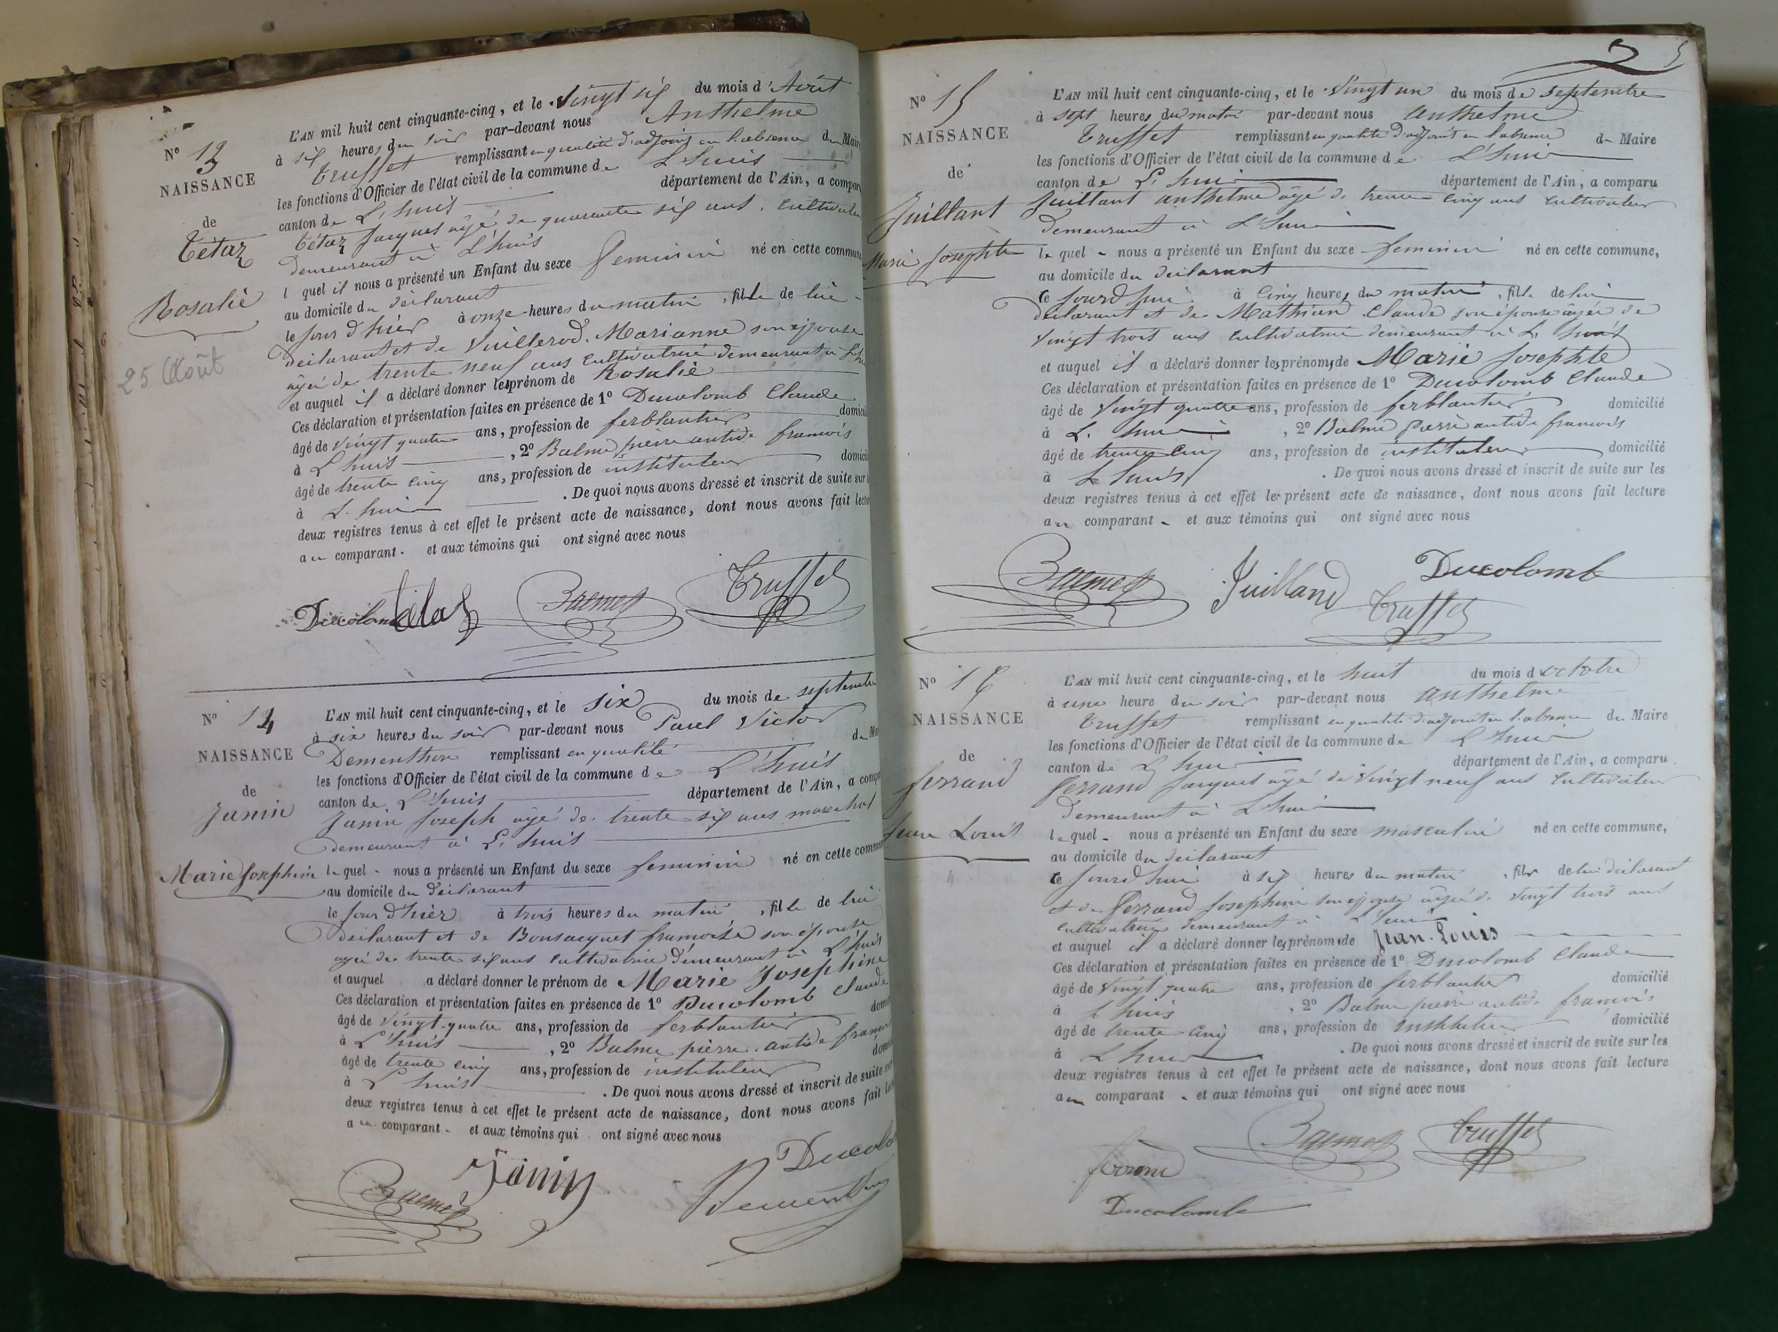 N° 13
NAISSANCE
de
Tétaz
Rosalie
25 Août
L'AN mil huit cent cinquante-cinq, et le Vingt six du mois d'Août
à six heures du soir par-devant nous Anthelme
Truffet remplissant en qualité d'adjoint en l'absence du Maire
les fonctions d'Officier de l'état civil de la commune de L'huis
canton de L'huis département de l'Ain, a comparu
Tétaz Jacques âgé de quarante six ans, cultivateur
demeurant à L'huis
lequel il nous a présenté un Enfant du sexe féminin né en cette commune,
au domicile du déclarant
le jour d'hier à onze heures du matin, fille de lui
déclarant et de Vuillerod Marianne son épouse
âgée de trente neuf ans cultivatrice demeurant à L'huis
et auquel il a déclaré donner les prénom de Rosalie
Ces déclaration et présentation faites en présence de 1° Ducolomb Claude
âgé de vingt quatre ans, profession de ferblantier domicilié
à L'huis, 2° Balme pierre antide francois
âgé de trente cinq ans, profession de instituteur domicilié
à L'huis. De quoi nous avons dressé et inscrit de suite sur les
deux registres tenus à cet effet le présent acte de naissance, dont nous avons fait lecture
au comparant. et aux témoins qui ont signé avec nous
Ducolomb Tétaz Balme Truffet
N° 14
NAISSANCE
de
Janin
Marie Josephine
L'AN mil huit cent cinquante-cinq, et le six du mois de septembre
à six heures du soir par-devant nous Paul Victor
Dementhon remplissant en qualité de Maire
les fonctions d'Officier de l'état civil de la commune de L'huis
canton de L'huis département de l'Ain, a comparu
Janin Joseph âgé de trente six ans maréchal
demeurant à L'huis
lequel nous a présenté un Enfant du sexe féminin né en cette commune
au domicile du déclarant
le jour d'hier à trois heures du matin, fille de lui
déclarant et de Bonsacquet francoise son épouse
âgée de trente six ans cultivatrice demeurant à L'huis
et auquel a déclaré donner le prénom de Marie Josephine
Ces déclaration et présentation faites en présence de 1° Ducolomb Claude
âgé de vingt-quatre ans, profession de ferblantier domicilié
à L'huis, 2° Balme pierre antide francois
âgé de trente cinq ans, profession de instituteur domicilié
à L'huis. De quoi nous avons dressé et inscrit de suite sur les
deux registres tenus à cet effet le présent acte de naissance, dont nous avons fait lecture
au comparant. et aux témoins qui ont signé avec nous
Janin Ducolomb
Balme Dementhon
N° 15
NAISSANCE
de
Juillant
Marie Josephte
L'AN mil huit cent cinquante-cinq, et le Vingt un du mois de septembre
à sept heures du matin par-devant nous Anthelme
Truffet remplissant en qualité d'adjoint en l'absence du Maire
les fonctions d'Officier de l'état civil de la commune de L'huis
canton de L'huis département de l'Ain, a comparu
Juillant anthelme âgé de trente cinq ans cultivateur
demeurant à L'huis
lequel nous a présenté un Enfant du sexe féminin né en cette commune,
au domicile du déclarant
le jourd'hui à cinq heures du matin, fille de lui
déclarant et de Mathieu Claude son épouse âgée de
vingt trois ans cultivatrice demeurant à L'huis
et auquel il a déclaré donner les prénoms de Marie Josephte
Ces déclaration et présentation faites en présence de 1° Ducolomb Claude
âgé de vingt quatre ans, profession de ferblantier domicilié
à L'huis, 2° Balme pierre antide francois
âgé de trente cinq ans, profession de instituteur domicilié
à L'huis. De quoi nous avons dressé et inscrit de suite sur les
deux registres tenus à cet effet les présent acte de naissance, dont nous avons fait lecture
au comparant et aux témoins qui ont signé avec nous
Balme Juilland Ducolomb
Truffet
N° 16
NAISSANCE
de
ferrand
Jean Louis
L'AN mil huit cent cinquante-cinq, et le huit du mois d'octobre
à une heure du soir par-devant nous anthelme
Truffet remplissant en qualité d'adjoint en l'absence du Maire
les fonctions d'Officier de l'état civil de la commune de L'huis
canton de L'huis département de l'Ain, a comparu
ferrand Jacques âgé de vingt neuf ans cultivateur
demeurant à L'huis
lequel nous a présenté un Enfant du sexe masculin né en cette commune,
au domicile du déclarant
le jourd'hui à six heures du matin, fils de lui déclarant
et de ferrand Josephine son épouse âgée de vingt trois ans
cultivatrice demeurant à L'huis
et auquel il a déclaré donner les prénoms de Jean-Louis
Ces déclaration et présentation faites en présence de 1° Ducolomb Claude
âgé de vingt quatre ans, profession de ferblantier domicilié
à L'huis, 2° Balme pierre antide francois
âgé de trente-cinq ans, profession de instituteur domicilié
à L'huis. De quoi nous avons dressé et inscrit de suite sur les
deux registres tenus à cet effet le présent acte de naissance, dont nous avons fait lecture
au comparant et aux témoins qui ont signé avec nous
ferrand Balme Truffet
Ducolomb